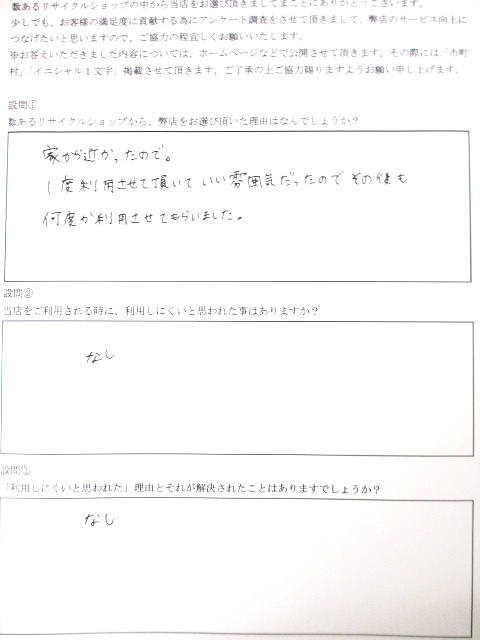 数あるリサイクルショップの中から当店をお選び頂きましてまことにありがとうございます。
少しでも、お客様の満足度に貢献する為にアンケート調査をさせて頂きまして、弊店のサービス向上に
つなげたいと思いますので、ご協力の程宜しくお願いいたします。
※お答えいただきました内容については、ホームページなどで公開させて頂きます。その際には「市町
村」「イニシャル１文字」掲載させて頂きます。ご了承の上ご協力賜りますようお願い申し上げます。
設問①
数あるリサイクルショップから、弊店をお選び頂いた理由はなんでしょうか？
家から近かったので。
1度利用させて頂いて いい雰囲気だったので その後も
何度か利用させてもらいました。
設問②
当店をご利用される時に、利用しにくいと思われた事はありますか？
なし
設問③
「利用しにくいと思われた」理由とそれが解決されたことはありますでしょうか？
なし